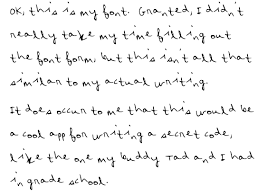 OK, this is my font. Granted, I didn't
really take my time filling out
the font form, but this isn't all that
similar to my actual writing.
It does occur to me that this would be
a cool app for writing a secret code,
like the one my buddy Tad and I had
in grade school.